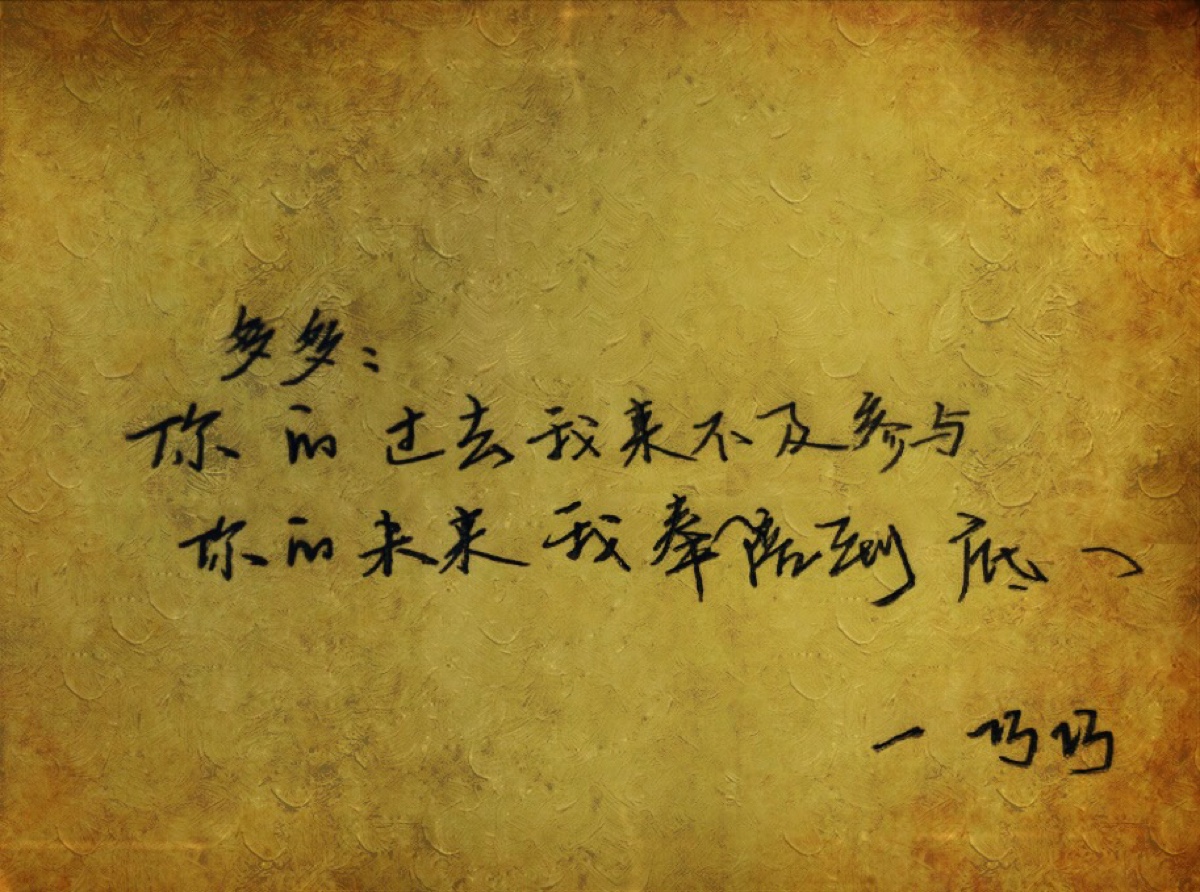 多多：
你的过去我来不及参与
你的未来我奉陪到底
一巧巧